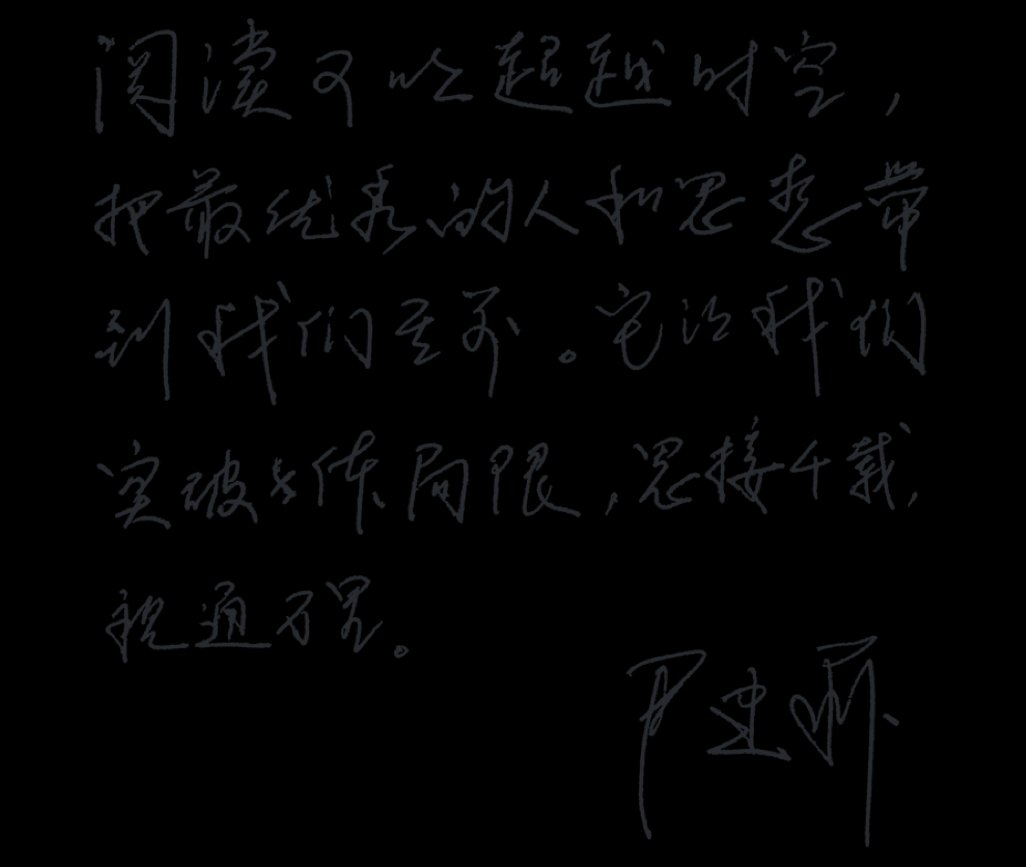 阅读可以超越时空，
把最优秀的人和思想带
到我们面前。它让我们
突破身体局限，思接千载，
视通万界。